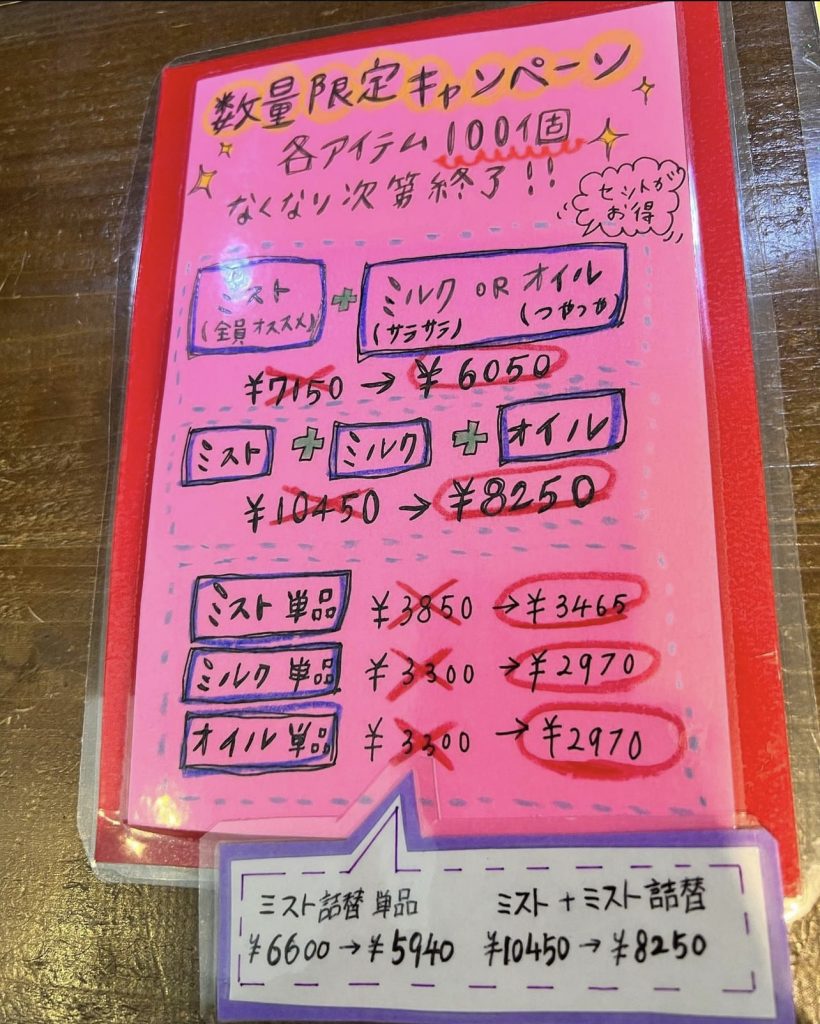 数量限定キャンペーン
各アイテム100個
なくなり次第終了!!
セットが
お得
ミスト + ミルク OR オイル
(全員オススメ) (サラサラ) (つやつや)
¥7150 → ¥6050
ミスト + ミルク + オイル
¥10450 → ¥8250
ミスト 単品 ¥3850 → ¥3465
ミルク 単品 ¥3300 → ¥2970
オイル 単品 ¥3300 → ¥2970
ミスト詰替 単品 ミスト + ミスト詰替
¥6600 → ¥5940 ¥10450 → ¥8250